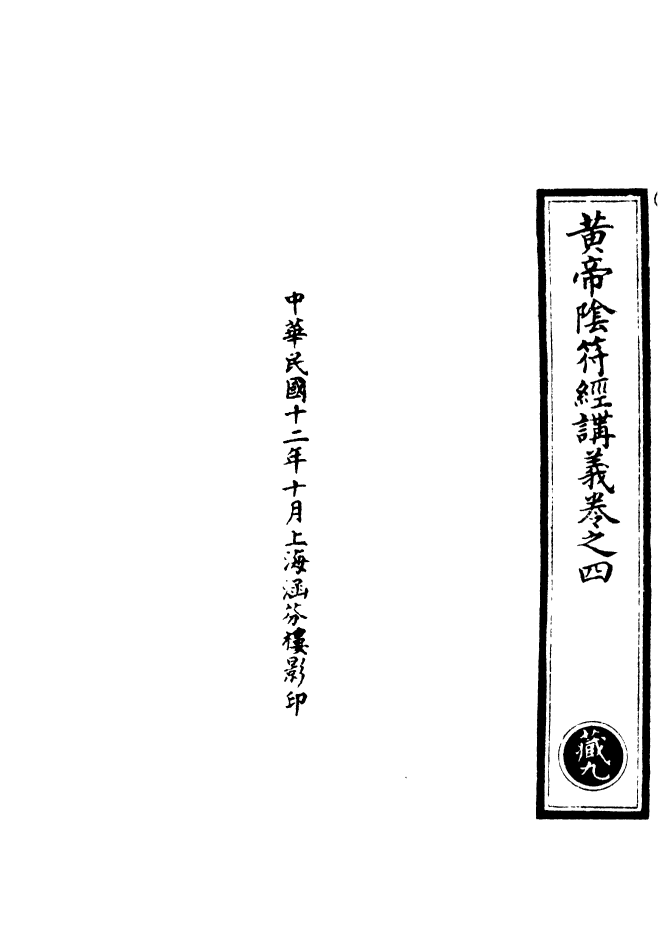 黄帝陰符經講義卷之四
藏九
中華民國十二年十月上海涵芬樓影印